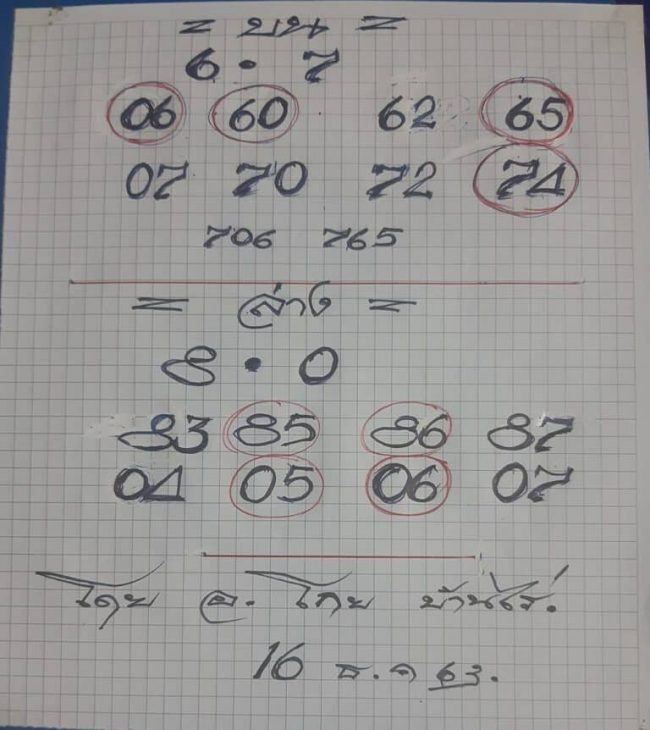 = บน =
6 • 7
06 60 62 65
07 70 72 74
706 765
= ล่าง =
8 • 0
83 85 86 87
04 05 06 07
โดย อ. โกย บ้านไร่.
16 ธ.ค 63.